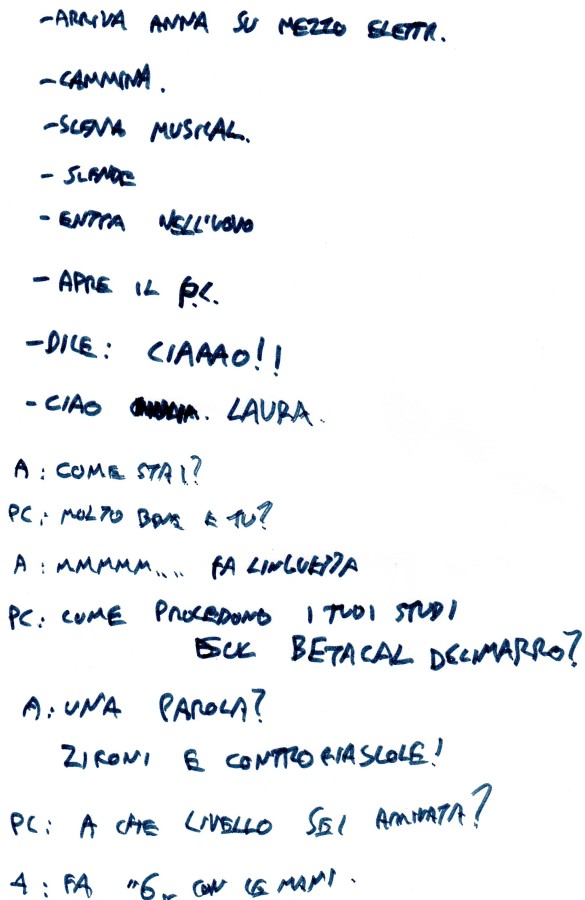 -ARRIVA ANNA SU MEZZO ELETTR.
-CAMMINA.
-SCENA MUSICAL.
- SCENDE
- ENTRA NELL'UOVO
- APRE IL P.C.
-DICE: CIAAAO!!
- CIAO LAURA.
A: COME STAI?
PC: MOLTO BENE E TU?
A: MMMMM.... FA LINGUETTA
PC: COME PROCEDONO I TUOI STUDI
BETACAL DECIMARRO?
A: UNA PAROLA?
ZIRONI E CONTRO
PC: A CHE LIVELLO SEI ARRIVATA?
A: FA "6" CON LE MANI.